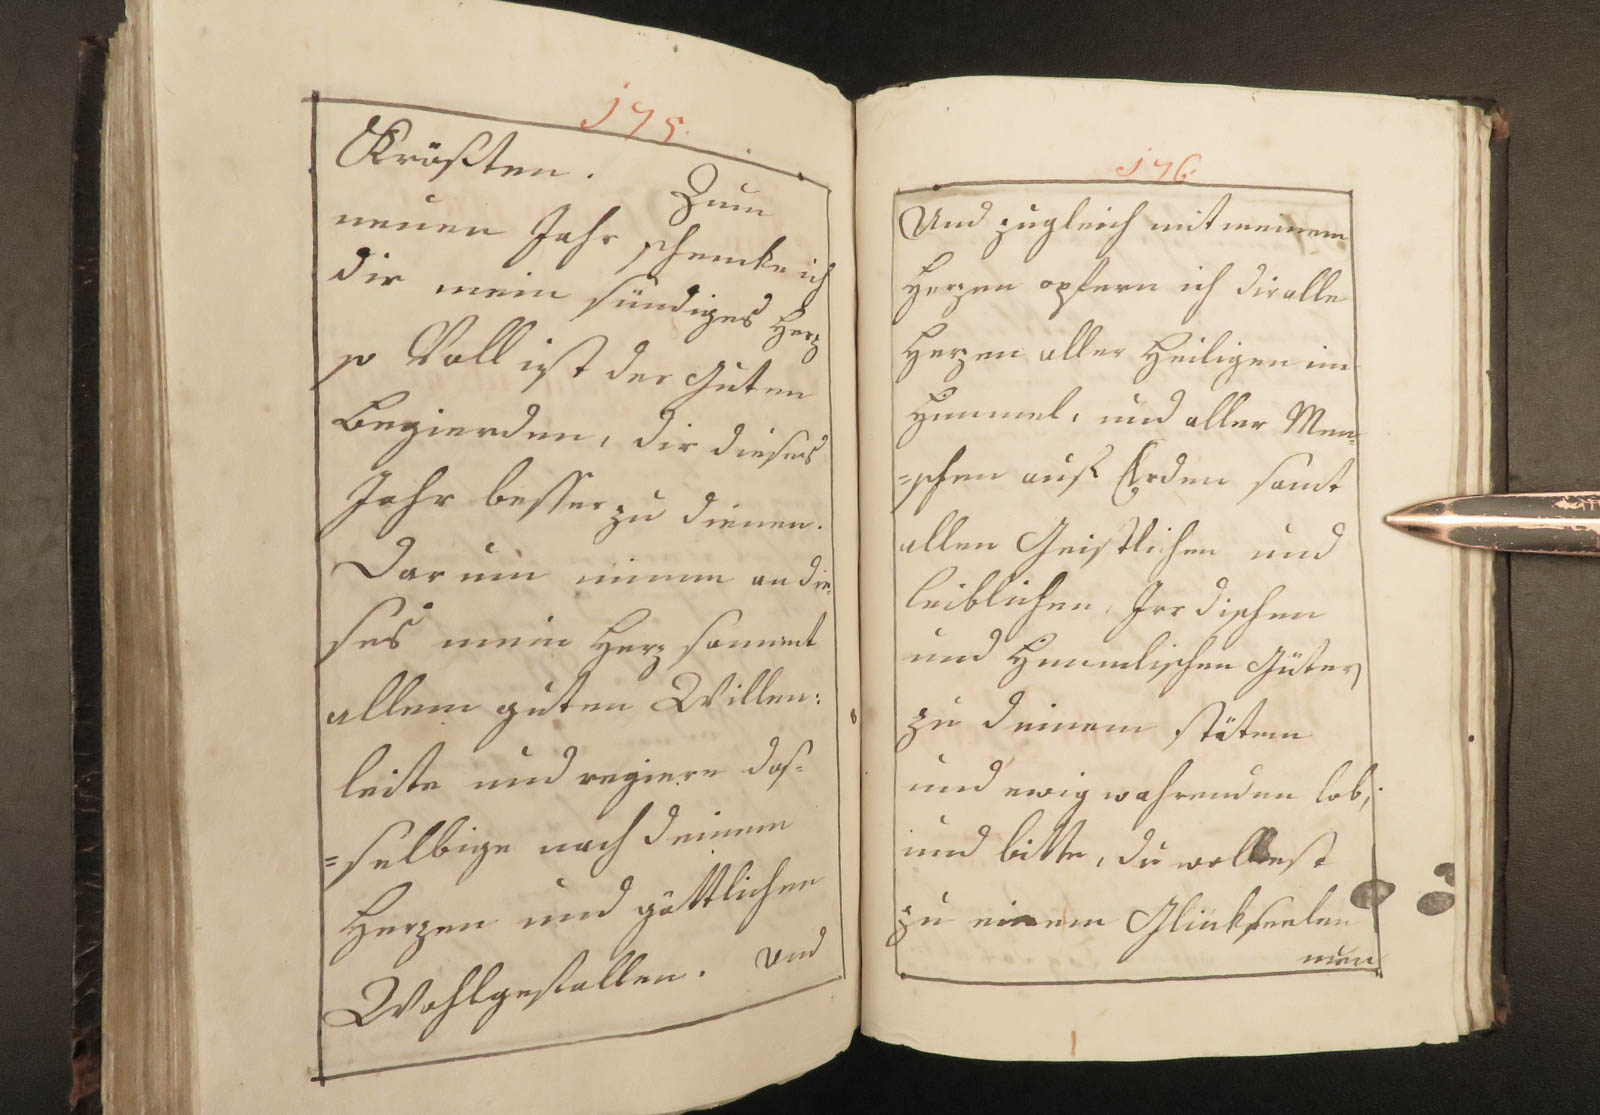 175.
Kräften. Zum
neuen Jahr schencke ich
dir mein sündiges Herz
so Voll ist der Guten
Begierden, dir dieses
Jahr besser zu dienen.
Darum nimm an die-
ses mein Herz sammt
allem guten Willen:
leite und regiere das=
=selbige nach deinem
Herzen und göttlichen
Wohlgefallen. Und
176.
Und zugleich mit meinem
Herzen opfern ich dir alle
Herzen aller Heiligen im
Himmel, und aller Men=
=schen auf Erden samt
allen Geistlichen und
leiblichen, Irrdischen
und Himmlischen Güter,
zu deinem stätem
und ewig wahrenden lob,
und bitte, du wollest
zu einem Glückseelen